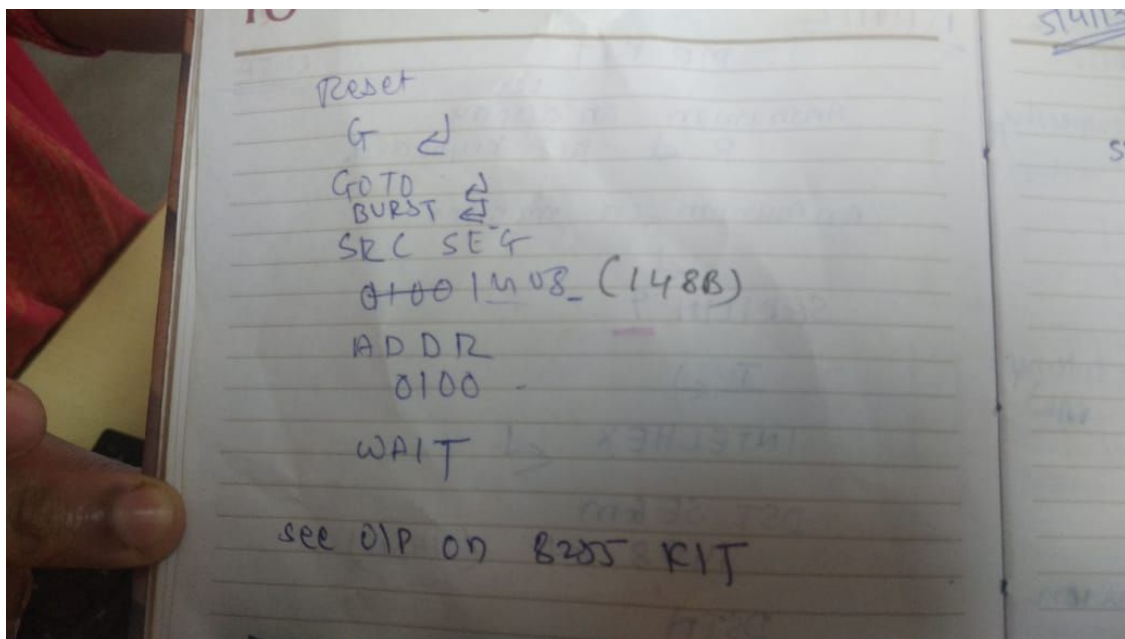 10
5/4/13
Reset
G ↵
GOTO ↵
BURST ↵
SRC SEG
0100 1408 (148B)
ADDR
0100
WAIT
see O/P on 8255 KIT